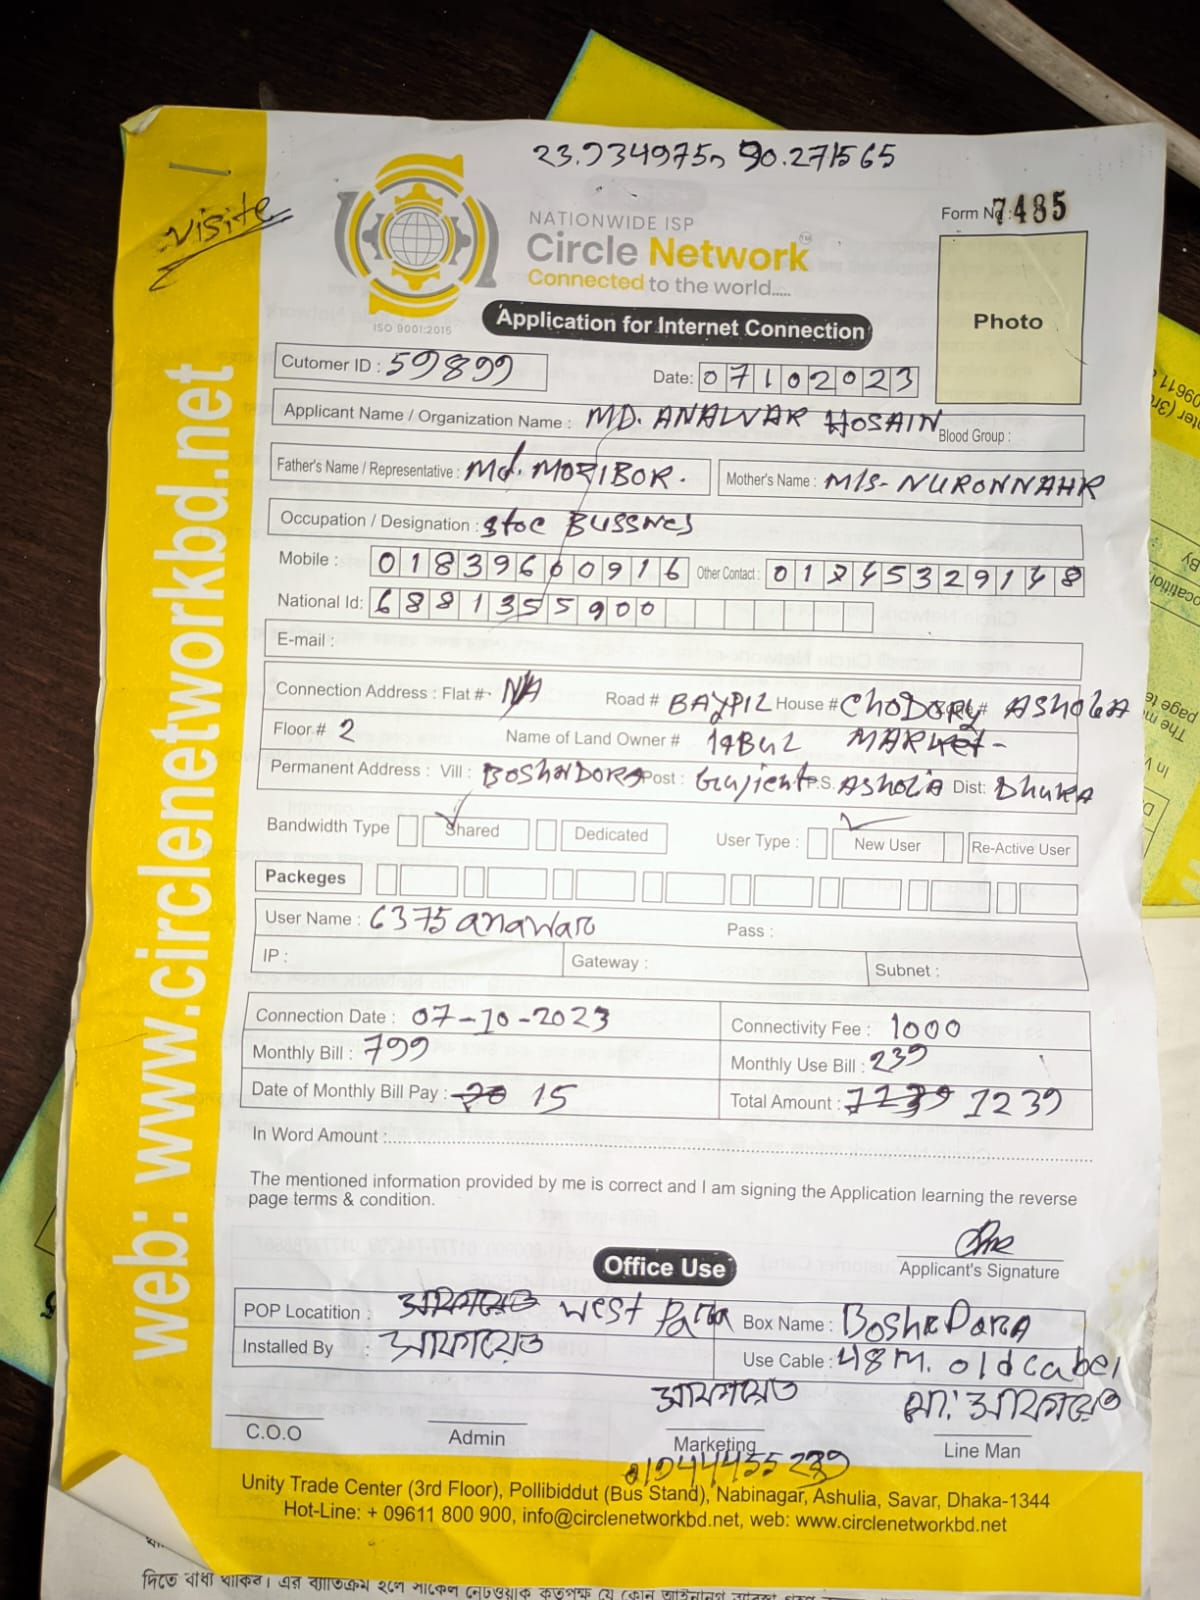 23.934975, 90.271565
visite
NATIONWIDE ISP
Circle Network
Connected to the world.....
ISO 9001:2015
Form No: 7485
Photo
Application for Internet Connection
Cutomer ID : 59899
Date: 07102023
Applicant Name / Organization Name : MD. ANAWAR HOSAIN Blood Group :
Father's Name / Representative : Md. MOZIBOR. Mother's Name : M/S- NURONNAHR
Occupation / Designation : stoc BUSSNES
Mobile : 01839600916 Other Contact :
National Id: 6881355900
E-mail :
Connection Address : Flat # N/A Road # BAYPIL House # CHODORY ASHOLA
Floor # 2 Name of Land Owner # MARKET-
Permanent Address : Vill : BOSHADORA Post : P.S. ASHOLIA Dist: DhakA
Bandwidth Type Shared Dedicated User Type : New User Re-Active User
Packeges
User Name : 6375anawar Pass :
IP : Gateway : Subnet :
Connection Date : 07-10-2023 Connectivity Fee : 1000
Monthly Bill : 799 Monthly Use Bill : 239
Date of Monthly Bill Pay : 20 15 Total Amount : 1239 1239
In Word Amount :
The mentioned information provided by me is correct and I am signing the Application learning the reverse
page terms & condition.
Applicant's Signature
Office Use
POP Locatition : আফায়েত west para Box Name : BoshaPara
Installed By : আফায়েত Use Cable : 48 m. old cabel
আফায়েত মো: আফায়েত
C.O.O Admin Marketing Line Man
01944455239
Unity Trade Center (3rd Floor), Pollibiddut (Bus Stand), Nabinagar, Ashulia, Savar, Dhaka-1344
Hot-Line: + 09611 800 900, info@circlenetworkbd.net, web: www.circlenetworkbd.net
web: www.circlenetworkbd.net
দিতে বাধ্য থাকিব। এর ব্যতিক্রম হলে সার্কেল নেটওয়ার্ক কর্তৃপক্ষ যে কোন